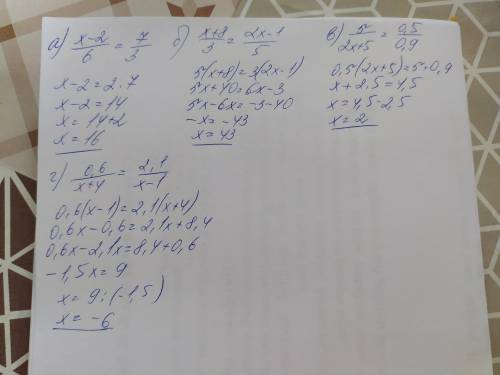 а) x-2/6 = 7/3
x-2=2·7
x-2=14
x=14+2
x=16
б) x+8/3 = 2x-1/5
5(x+8)=3(2x-1)
5x+40=6x-3
5x-6x=-3-40
-x=-43
x=43
в) 5/2x+5 = 0,5/0,9
0,5(2x+5)=5·0,9
x+2,5=4,5
x=4,5-2,5
x=2
г) 0,6/x+4 = 2,1/x-1
0,6(x-1)=2,1(x+4)
0,6x-0,6=2,1x+8,4
0,6x-2,1x=8,4+0,6
-1,5x=9
x=9:(-1,5)
x=-6